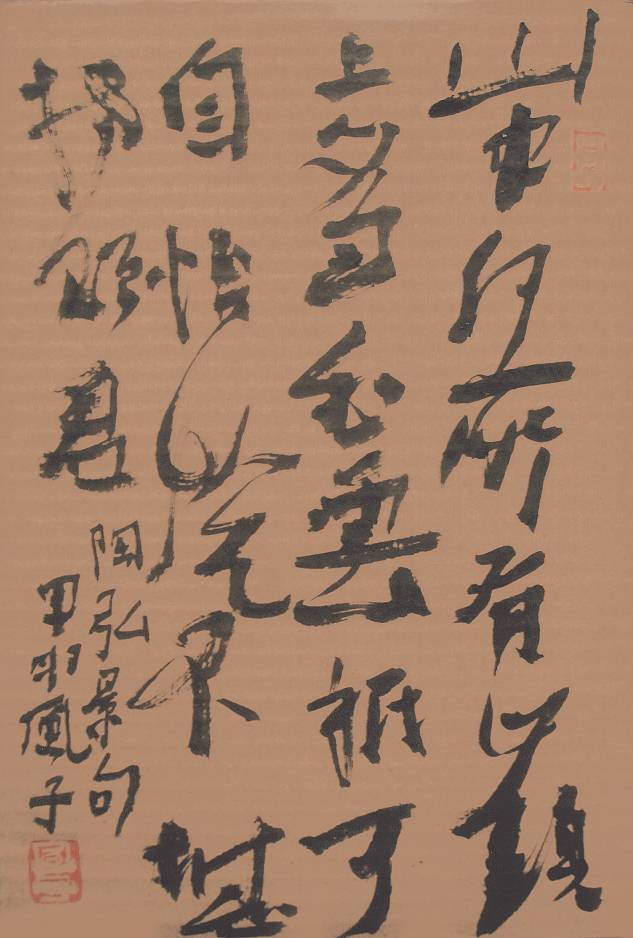 山中何所有嶺
上多白雲祇可
自怡悅不堪
持贈君
陶弘景句
甲風子